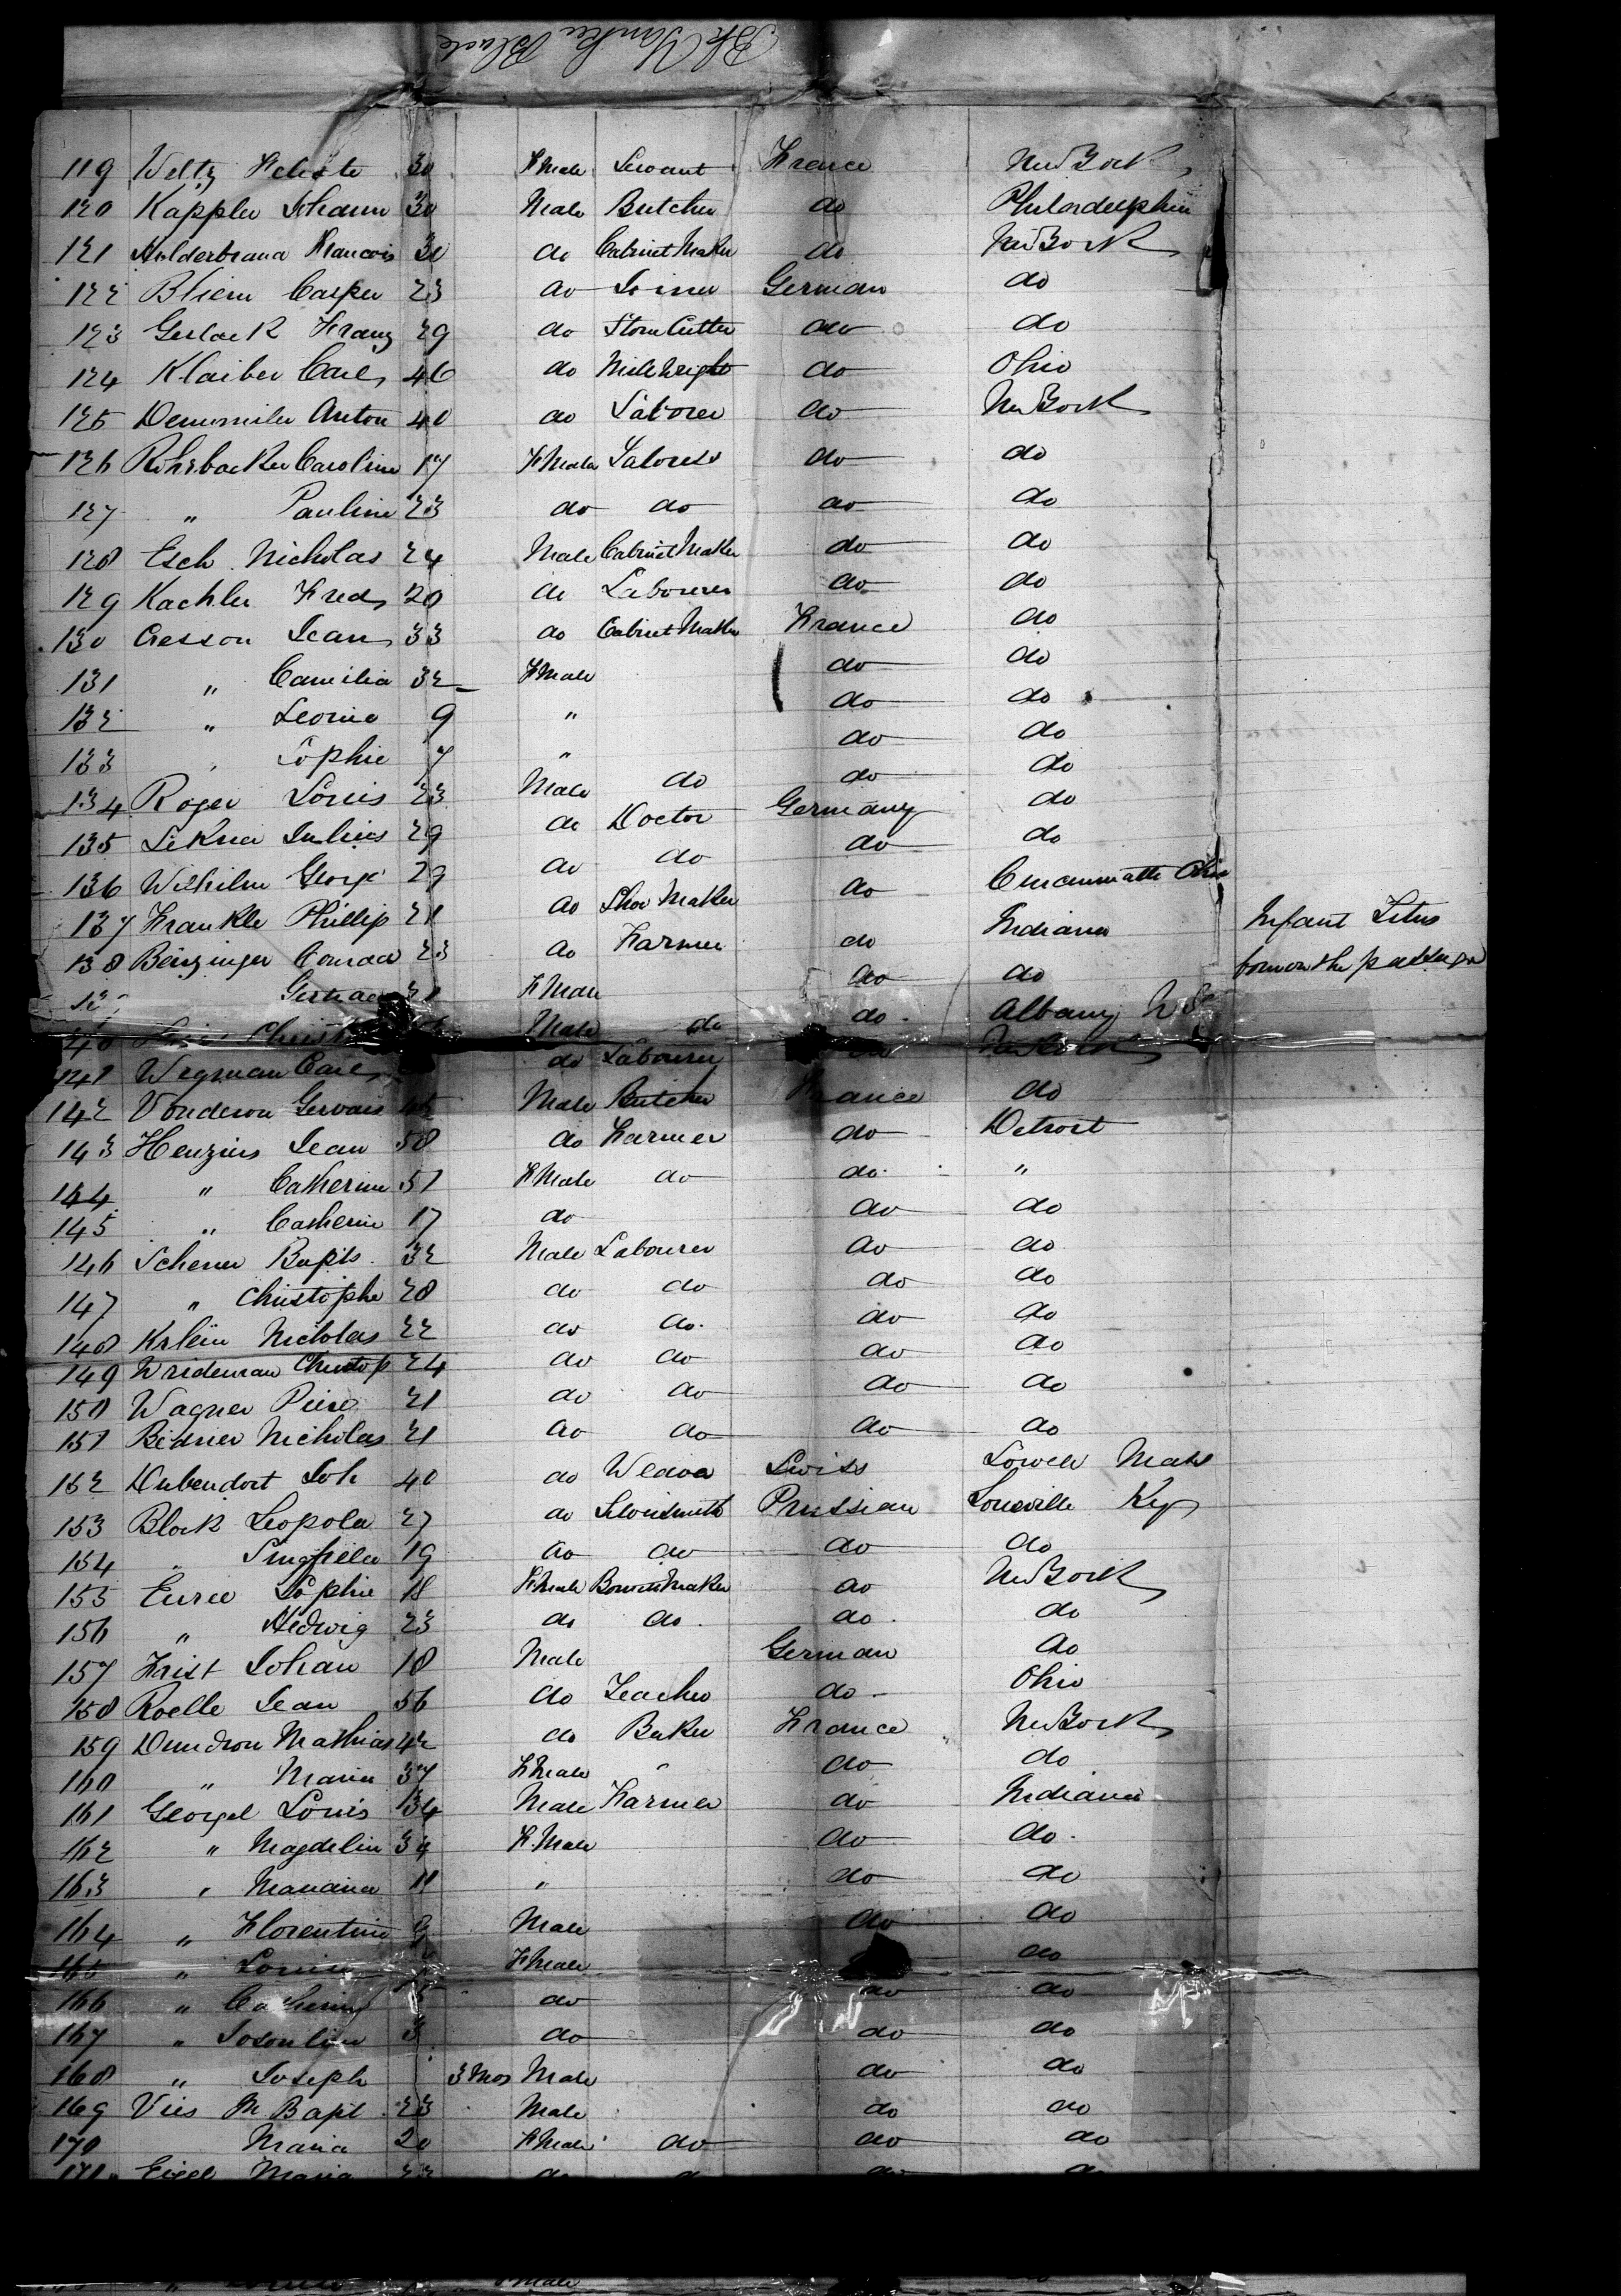 Bk Yankee Blade
119 Weltz 30 FMale Servant France New York
120 Kappler Johann 30 Male Butcher do Philaradelphia
121 Hilderbrand Francois 30 do Cabinet Maker do New York
122 Bliem Casper 23 do Joiner German do
123 Gerlack Franz 29 do Stone Cutter do do
124 Klaiber Carl 46 do Mill Wright do Ohio
125 Anton 40 do Laborer do New York
126 Rohrbacker Caroline 17 FMale Laboress do do
127 " Pauline 23 do do do do
128 Esch Nicholas 24 Male Cabinet Maker do do
129 Kachler Fred 20 do Labourer do do
130 Cresson Jean 33 do Cabinet Maker France do
131 " Camilia 32 FMale do do
132 " Leonie 9 " do do
133 " Sophie 7 " do do
134 Roger Louis 23 Male do do do
135 Julius 29 do Doctor Germany do
136 Wilhilm George 29 do do do do
137 Frankle Phillip 21 do Shoe Maker do Cincinnatti Ohio
138 Benzinger Conrad 23 do Farmer do Indiana Infant Titus
FMale do do born on the passage
Male do do Albany
141 Wegman Carl do Labourer do New York
142 Vonderon Gervais 45 Male Butcher France do
143 Henzius Jean 50 do Farmer do Detroit
144 " Catherine 51 FMale do do "
145 " Catherine 17 do do do
146 Scherer Bapts. 32 Male Labourer do do
147 " Christophe 28 do do do do
148 Krlein Nicholas 22 do do. do do
149 Wrideman Christop 24 do do do do
150 Wagner Piere 21 do do do do
151 Bidner Nicholas 21 do do do do
152 Dubendort Joh 40 do Weaver Swiss Lowell Mass
153 Block Leopold 27 do Silversmith Prussian Louisville Ky
154 " 19 do do do do
155 Euree Sophie 18 FMale Bonnet Maker do New York
156 " Hedwig 23 do do. do. do
157 Frist Johan 18 Male German do
158 Roelle Jean 56 do Teacher do Ohio
159 Dundron Mathias 42 do Baker France New York
160 " Maria 37 FMale " do do
161 Georgel Louis 34 Male Farmer do Indiana
162 " Magdelin 34 F.Male do do.
163 " Mariana 11 " do do
164 " Florentine 9 Male do do
165 " Louise FMale do
166 " Catherine do do do
167 " 3 do do do
168 " Joseph 3 Mos Male do do
169 Vies M Bapt 23 Male do do
170 Maria 20 FMale do do do
171 Maria do do do do